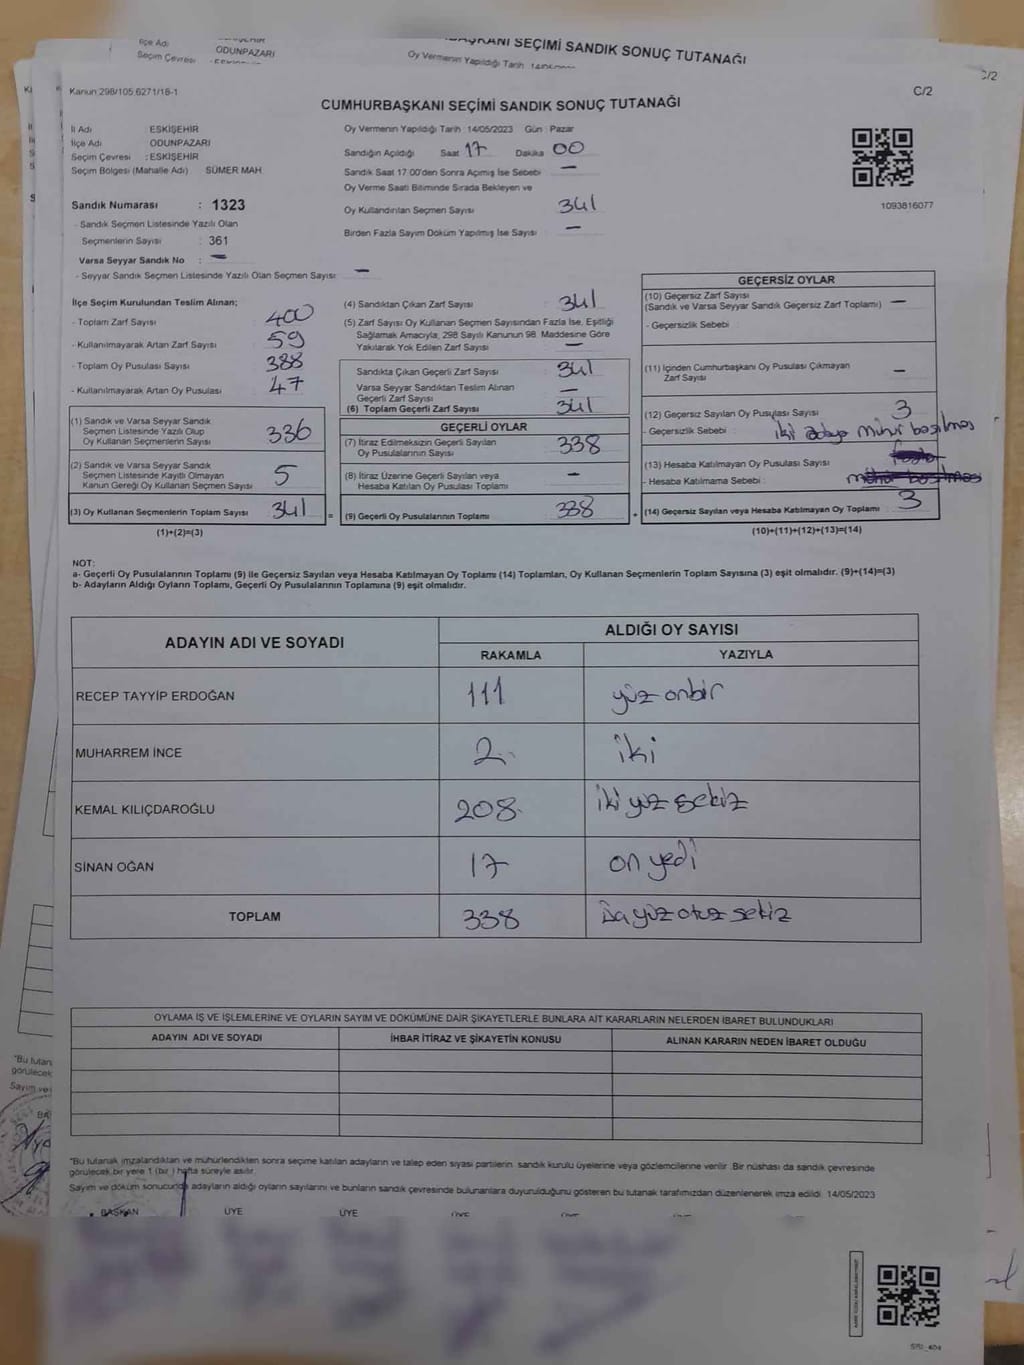 İlçe Adı
ODUNPAZARI
Seçim Çevresi
BAŞKANI SEÇİMİ SANDIK SONUÇ TUTANAĞI
Oy Vermenin Yapıldığı Tarih
C/2
Kanun 298/105,6271/18-1
C/2
CUMHURBAŞKANI SEÇİMİ SANDIK SONUÇ TUTANAĞI
İl Adı : ESKİŞEHİR
İlçe Adı : ODUNPAZARI
Seçim Çevresi : ESKİŞEHİR
Seçim Bölgesi (Mahalle Adı) SÜMER MAH
Sandık Numarası : 1323
- Sandık Seçmen Listesinde Yazılı Olan
Seçmenlerin Sayısı : 361
Varsa Seyyar Sandık No : —
- Seyyar Sandık Seçmen Listesinde Yazılı Olan Seçmen Sayısı : —
Oy Vermenin Yapıldığı Tarih : 14/05/2023 Gün : Pazar
Sandığın Açıldığı Saat 17 Dakika 00
Sandık Saat 17:00'den Sonra Açılmış İse Sebebi —
Oy Verme Saati Bitiminde Sırada Bekleyen ve
Oy Kullandırılan Seçmen Sayısı 341
Birden Fazla Sayım Döküm Yapılmış İse Sayısı —
1093816077
İlçe Seçim Kurulundan Teslim Alınan;
- Toplam Zarf Sayısı 400
- Kullanılmayarak Artan Zarf Sayısı 59
- Toplam Oy Pusulası Sayısı 388
- Kullanılmayarak Artan Oy Pusulası 47
(1) Sandık ve Varsa Seyyar Sandık
Seçmen Listesinde Yazılı Olup
Oy Kullanan Seçmenlerin Sayısı 336
(2) Sandık ve Varsa Seyyar Sandık
Seçmen Listesinde Kayıtlı Olmayan
Kanun Gereği Oy Kullanan Seçmen Sayısı 5
(3) Oy Kullanan Seçmenlerin Toplam Sayısı 341 =
(1)+(2)=(3)
(4) Sandıktan Çıkan Zarf Sayısı 341
(5) Zarf Sayısı Oy Kullanan Seçmen Sayısından Fazla İse, Eşitliği
Sağlamak Amacıyla, 298 Sayılı Kanunun 98. Maddesine Göre
Yakılarak Yok Edilen Zarf Sayısı —
Sandıkta Çıkan Geçerli Zarf Sayısı 341
Varsa Seyyar Sandıktan Teslim Alınan
Geçerli Zarf Sayısı —
(6) Toplam Geçerli Zarf Sayısı 341
GEÇERLİ OYLAR
(7) İtiraz Edilmeksizin Geçerli Sayılan
Oy Pusulasının Sayısı 338
(8) İtiraz Üzerine Geçerli Sayılan veya
Hesaba Katılan Oy Pusulası Toplamı —
(9) Geçerli Oy Pusulalarının Toplamı 338 +
GEÇERSİZ OYLAR
(10) Geçersiz Zarf Sayısı
(Sandık ve Varsa Seyyar Sandık Geçersiz Zarf Toplamı) —
- Geçersizlik Sebebi :
(11) İçinden Cumhurbaşkanı Oy Pusulası Çıkmayan
Zarf Sayısı —
(12) Geçersiz Sayılan Oy Pusulası Sayısı 3
- Geçersizlik Sebebi : iki adaya mühür basılmas
(13) Hesaba Katılmayan Oy Pusulası Sayısı
- Hesaba Katılmama Sebebi :
(14) Geçersiz Sayılan veya Hesaba Katılmayan Oy Toplamı 3
(10)+(11)+(12)+(13)=(14)
NOT:
a- Geçerli Oy Pusulalarının Toplamı (9) ile Geçersiz Sayılan veya Hesaba Katılmayan Oy Toplamı (14) Toplamları, Oy Kullanan Seçmenlerin Toplam Sayısına (3) eşit olmalıdır. (9)+(14)=(3)
b- Adayların Aldığı Oyların Toplamı, Geçerli Oy Pusulalarının Toplamına (9) eşit olmalıdır.
ADAYIN ADI VE SOYADI
ALDIĞI OY SAYISI
RAKAMLA YAZIYLA
RECEP TAYYİP ERDOĞAN 111 yüz onbir
MUHARREM İNCE 2 iki
KEMAL KILIÇDAROĞLU 208 iki yüz sekiz
SİNAN OĞAN 17 on yedi
TOPLAM 338 üçyüz otuz sekiz
OYLAMA İŞ VE İŞLEMLERİNE VE OYLARIN SAYIM VE DÖKÜMÜNE DAİR ŞİKAYETLERLE BUNLARA AİT KARARLARIN NELERDEN İBARET BULUNDUKLARI
ADAYIN ADI VE SOYADI İHBAR İTİRAZ VE ŞİKAYETİN KONUSU ALINAN KARARIN NEDEN İBARET OLDUĞU
"Bu tutanak imzalandıktan ve mühürlendikten sonra seçime katılan adayların ve talep eden siyasi partilerin sandık kurulu üyelerine veya gözlemcilerine verilir. Bir nüshası da sandık çevresinde
görülecek bir yere 1 (bir) hafta süreyle asılır.
Sayım ve döküm sonucunda adayların aldığı oyların sayılarını ve bunların sandık çevresinde bulunanlara duyurulduğunu gösteren bu tutanak tarafımızdan düzenlenerek imza edildi. 14/05/2023
BAŞKAN ÜYE ÜYE ÜYE